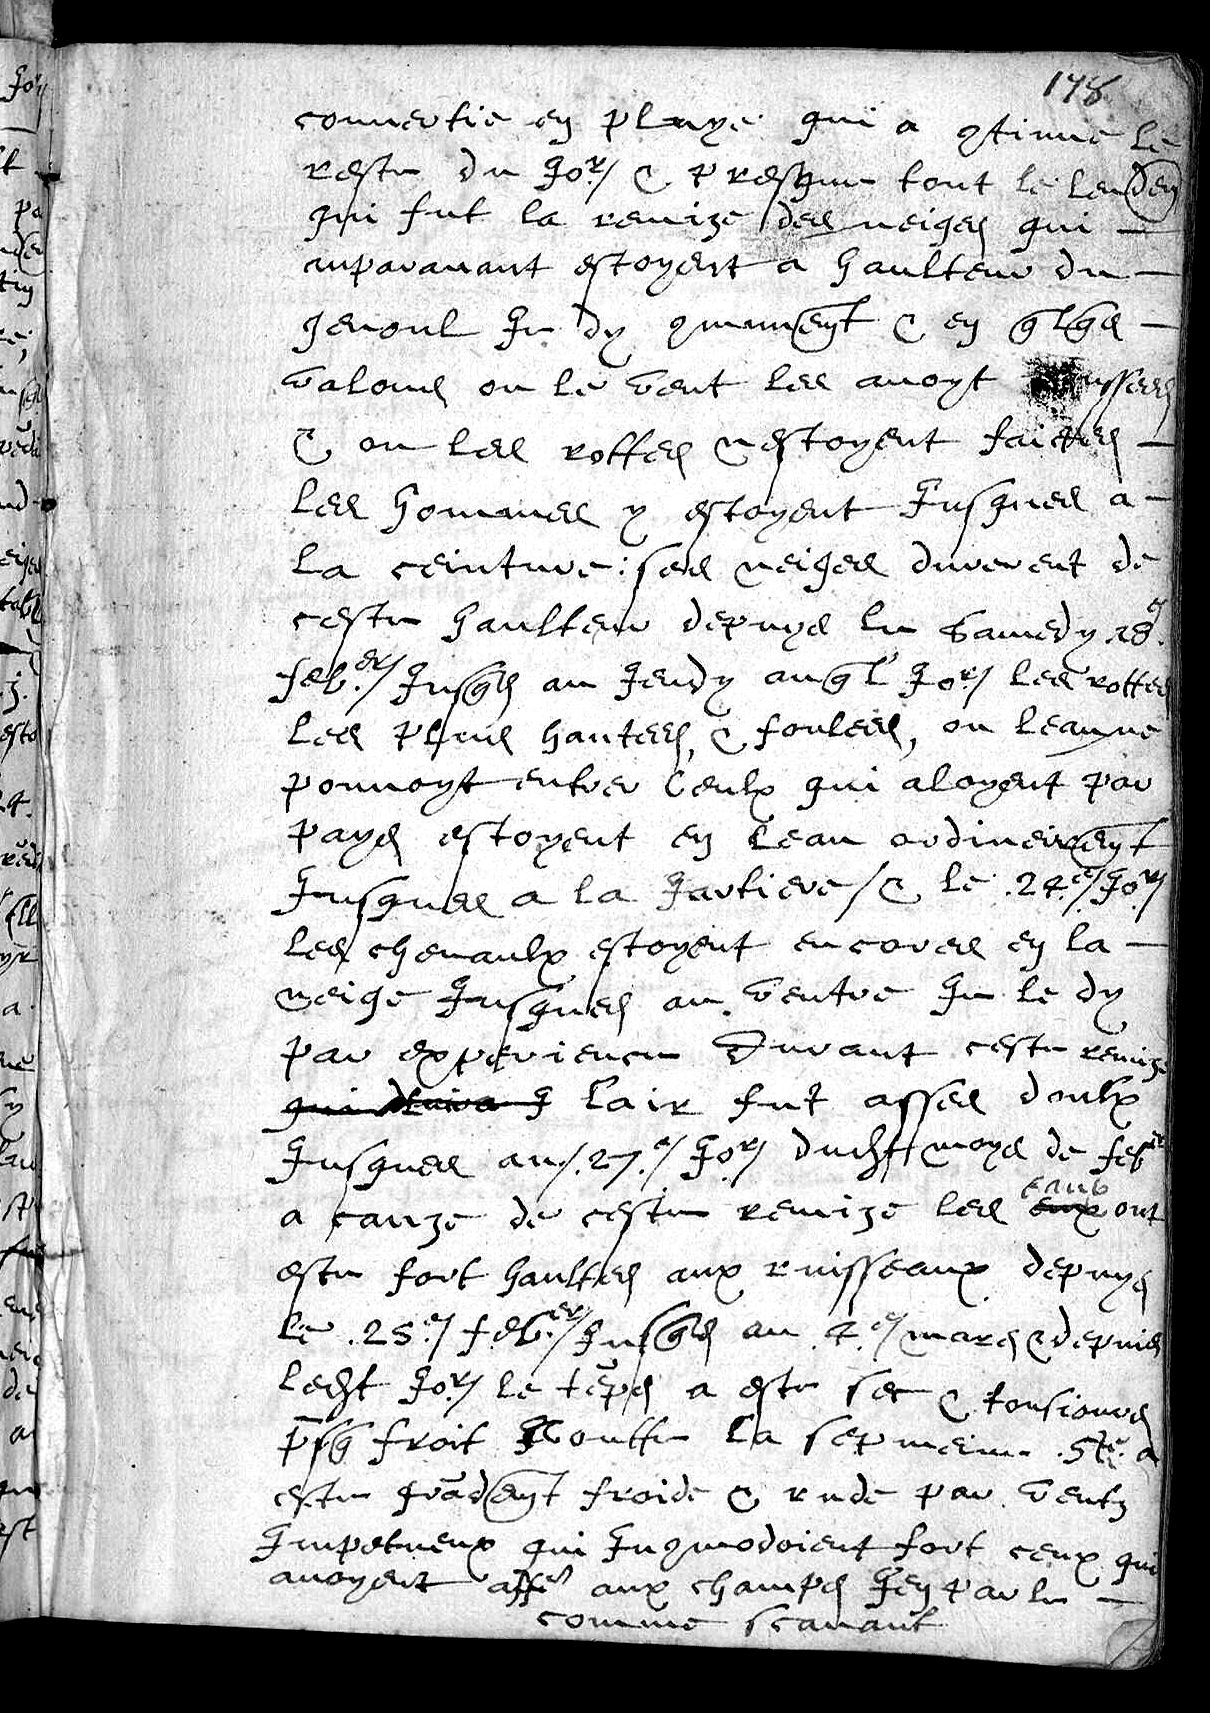 178
convertie en pluye qui a 9tinue le
reste du Jor & presque tout le lenden
qui fut la remize des neiges qui
auparavant estoyent a haulteur du
genoul Je dy 9munent & en qlqs
valons ou le vent les avoyt ussees
& ou les rottes nestoyent faictes
les hommes y estoyent Jusques a
la ceinture : ses neiges durerent de
ceste haulteur depuys le Samedy .18.e
feb.er Jusqs au Jeudy auql Jor les rottes
les plus hantees, & foulees, ou leau ne
pouvoyt entrer Ceulx qui aloyent par
pays estoyent en leau ordineirent
Jusques a la Jartiere / & le .24.e Jor
les chevaulx estoyent encores en la
neige Jusques au ventre Je le dy
par experience Durant ceste remize
lair fut asses doulx
Jusques au .27.e Jor dudt moys de feb.er
a cauze de ceste remize les eaus ont
este fort haultes aux ruisseaux depuys
le .25.e feb.er Jusqs au .4.e mars & depuis
ledt Jor le teps a este sec & tousiours
psq froit Toutte la sepmeine .Ste. a
este gradent froide & rude par ventz
Jmpetueux qui Jn9modoient fort ceux qui
avoyent affe aux champs Jen parle
comme scavant